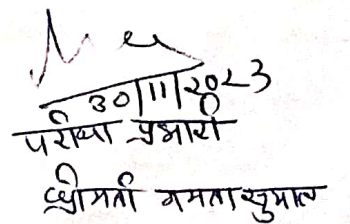 30/11/2023
परीक्षा प्रभारी
श्रीमती ममता सुमन